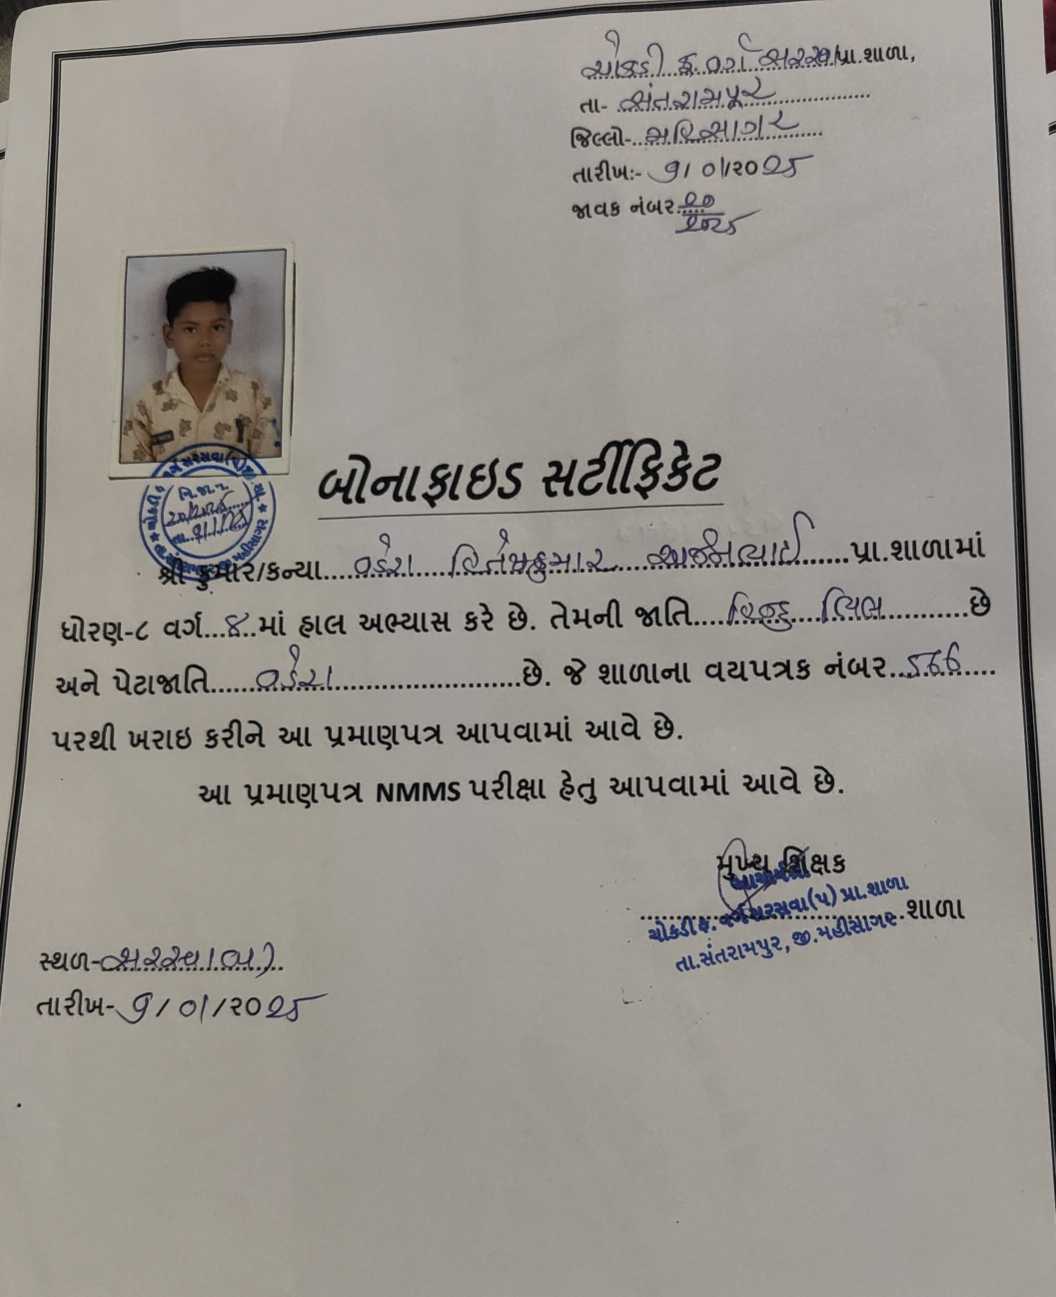 ચોકડી ફ. વર્ગ સરસવા પ્રા.શાળા,
તા- સંતરામપુર
જિલ્લો- મહિસાગર
તારીખઃ- 9/01/2025
જાવક નંબર 20/2025
બોનાફાઇડ સર્ટીફિકેટ
શ્રી કુમાર/કન્યા વડેરા હિતેષકુમાર પ્રા.શાળામાં
ધોરણ-૮ વર્ગ માં હાલ અભ્યાસ કરે છે. તેમની જાતિ હિન્દુ ભિલ છે
અને પેટાજાતિ વડેરા છે. જે શાળાના વયપત્રક નંબર 566
પરથી ખરાઇ કરીને આ પ્રમાણપત્ર આપવામાં આવે છે.
આ પ્રમાણપત્ર NMMS પરીક્ષા હેતુ આપવામાં આવે છે.
મુખ્ય શિક્ષક
આચાર્યશ્રી
ચોકડી ફ. વર્ગ સરસવા(પ) પ્રા.શાળા
શાળા
તા.સંતરામપુર, જી.મહીસાગર
સ્થળ- સરસવા(પ)
તારીખ- 9/01/2025